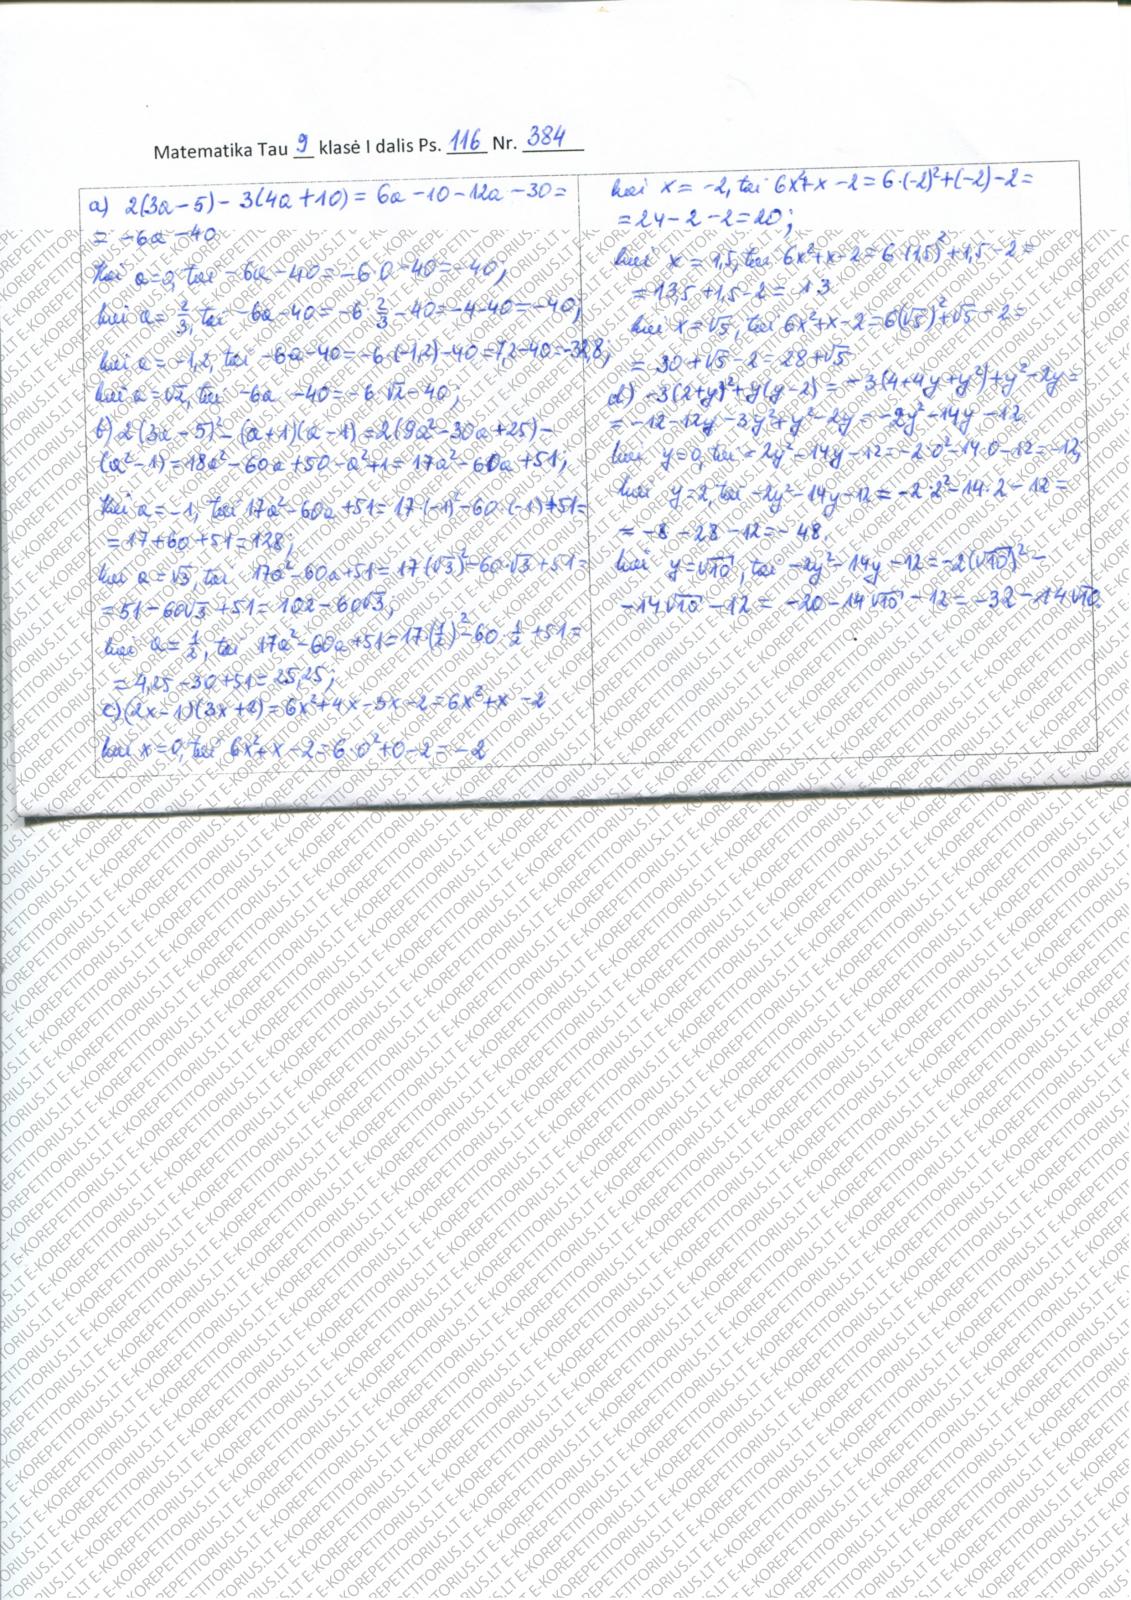 Matematika Tau 9 klasė I dalis Ps. 116 Nr. 384
a) 2(3a-5)-3(4a+10)=6a-10-12a-30=
= -6a-40
Kai a=0, tai -6a-40=-6·0-40=-40;
kai a=2/3, tai -6a-40=-6·2/3-40=-4-40=-40;
kai a=-1,2, tai -6a-40=-6·(-1,2)-40=7,2-40=-32,8;
kai a=√2, tai -6a-40=-6√2-40;
b) 2(3a-5)²-(a+1)(a-1)=2(9a²-30a+25)-
(a²-1)=18a²-60a+50-a²+1=17a²-60a+51;
Kai a=-1, tai 17a²-60a+51=17·(-1)²-60·(-1)+51=
=17+60+51=128;
kai a=√3, tai 17a²-60a+51=17(√3)²-60·√3+51=
=51-60√3+51=102-60√3;
kai a=1/2, tai 17a²-60a+51=17·(1/2)²-60·1/2+51=
=4,25-30+51=25,25;
c)(2x-1)(3x+2)=6x²+4x-3x-2=6x²+x-2
kai x=0, tai 6x²+x-2=6·0²+0-2=-2
kai x=-2, tai 6x²+x-2=6·(-2)²+(-2)-2=
=24-2-2=20;
kai x=1,5, tai 6x²+x-2=6·(1,5)²+1,5-2=
=13,5+1,5-2=13
kai x=√5, tai 6x²+x-2=6(√5)²+√5-2=
=30+√5-2=28+√5
d) -3(2+y)²+y(y-2)=-3(4+4y+y²)+y²-2y=
=-12-12y-3y²+y²-2y=-2y²-14y-12
kai y=0, tai -2y²-14y-12=-2·0²-14·0-12=-12;
kai y=2, tai -2y²-14y-12=-2·2²-14·2-12=
=-8-28-12=-48.
kai y=√10, tai -2y²-14y-12=-2(√10)²-
-14√10-12=-20-14√10-12=-32-14√10.
E-KOREPETITORIUS.LT